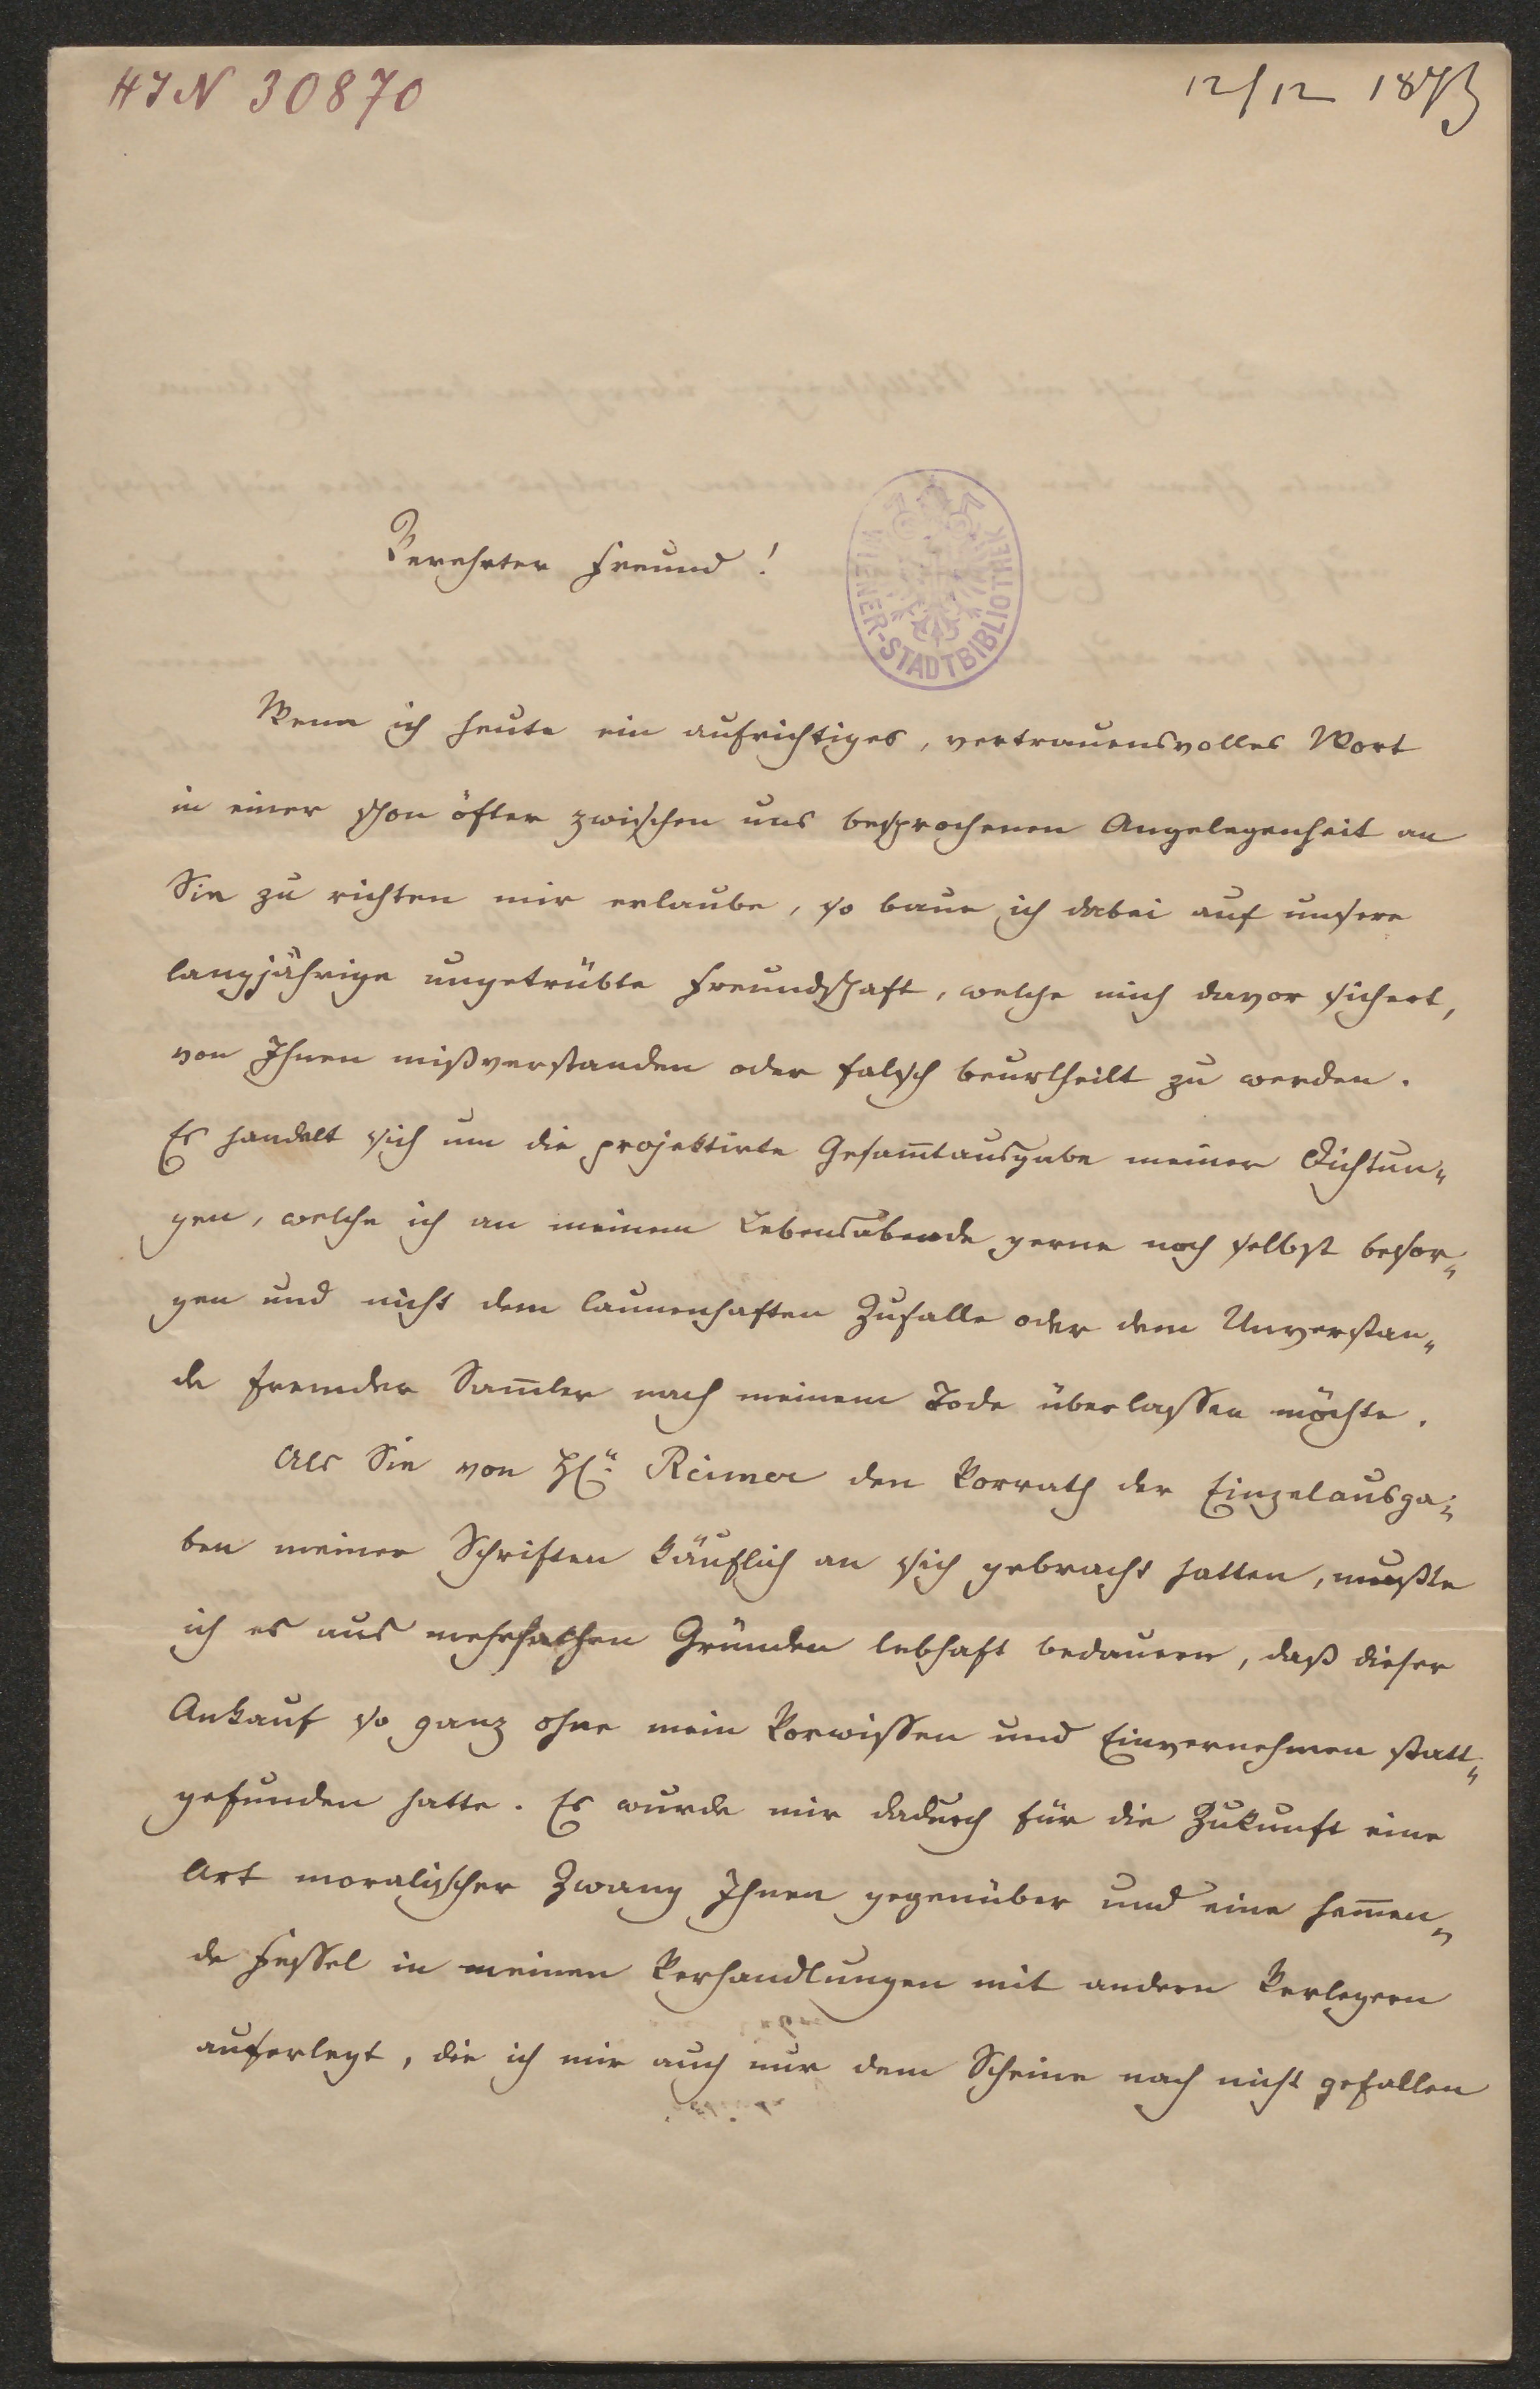 HIN 30870
12/12 1873
Verehrter Freund!
WIENER-STADTBIBLIOTHEK
Wenn ich heute ein aufrichtiges, vertrauensvolles Wort
in einer schon öfter zwischen uns besprochenen Angelegenheit an
Sie zu richten mir erlaube, so baue ich dabei auf unsere
langjährige ungetrübte Freundschaft, welche mich davor sichert,
von Ihnen mißverstanden oder falsch beurtheilt zu werden.
Es handelt sich um die projektirte Gesam̅tausgabe meiner Dichtun„
gen, welche ich an meinem Lebensabende gerne noch selbst besor„
gen und nicht dem launenhaften Zufalle oder dem Unverstan„
de fremder Sam̅ler nach meinem Tode überlassen möchte.
Als Sie von H: Reimer den Vorrath der Einzelausga„
ben meiner Schriften käuflich an sich gebracht hatten, mußte
ich es aus mehrfachen Gründen lebhaft bedauern, daß dieser
Ankauf so ganz ohne mein Vorwissen und Einvernehmen statt„
gefunden hatte. Es wurde mir dadurch für die Zukunft eine
Art moralischer Zwang Ihnen gegenüber und eine hem̅en„
de Fessel in meinen Verhandlungen mit andern Verlegern
auferlegt, die ich mir auch nur dem Scheine nach nicht gefallen